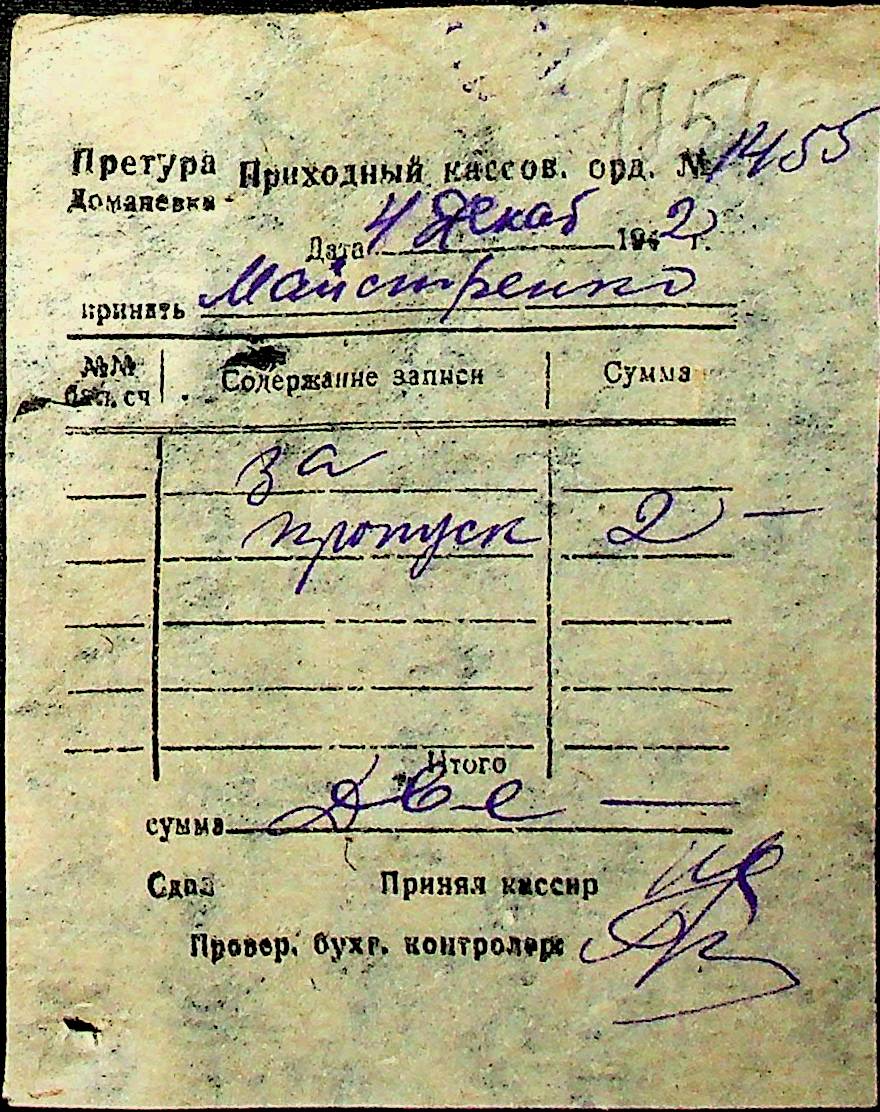 Претура Приходный кассов. орд. № 1455
Доманевка
Дата 4 Декаб 1942 г.
принять Майстренко
№№ Содержание записи Сумма
сч
за
пропуск 2 —
Итого
сумма Две —
Сдал Принял кассир
Провер. бухг. контролер